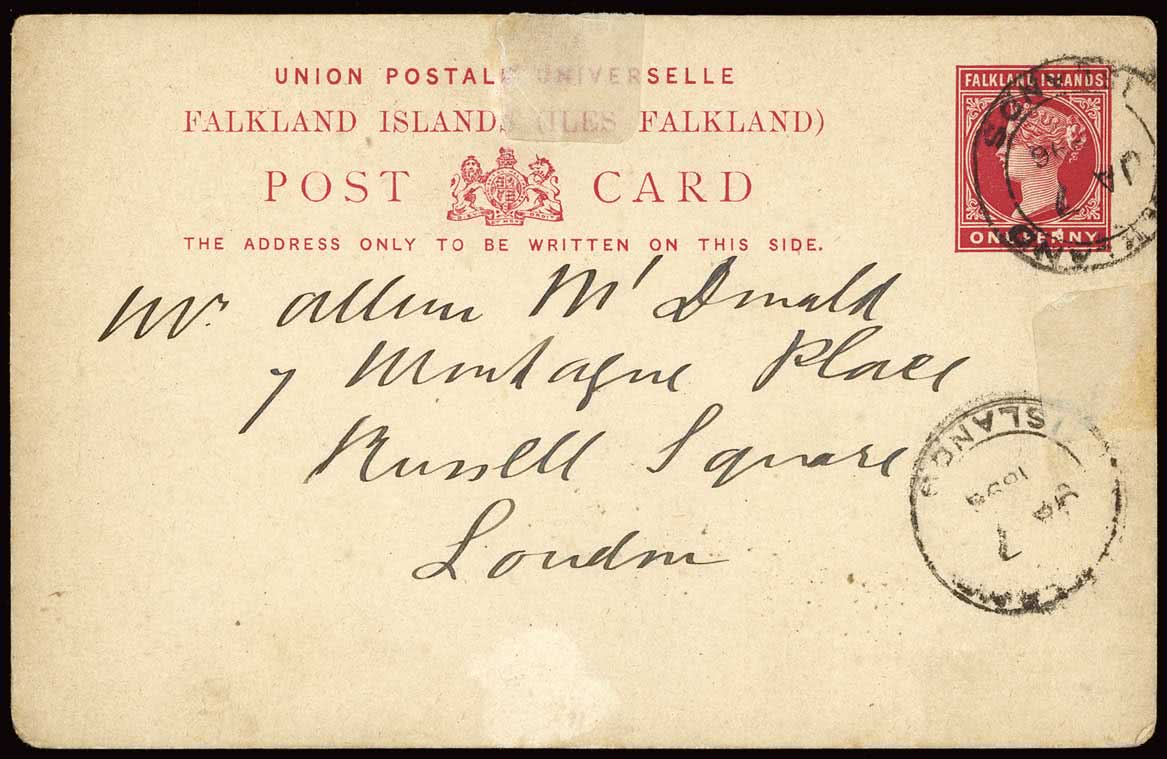 UNION POSTALE UNIVERSELLE
FALKLAND ISLANDS (ILES FALKLAND)
POST CARD
THE ADDRESS ONLY TO BE WRITTEN ON THIS SIDE.
FALKLAND ISLANDS
ONE PENNY
JA 7 96
Mr. Allan McDonald
7 Montague Place
Russell Square
London
ISLANDS
JA 7